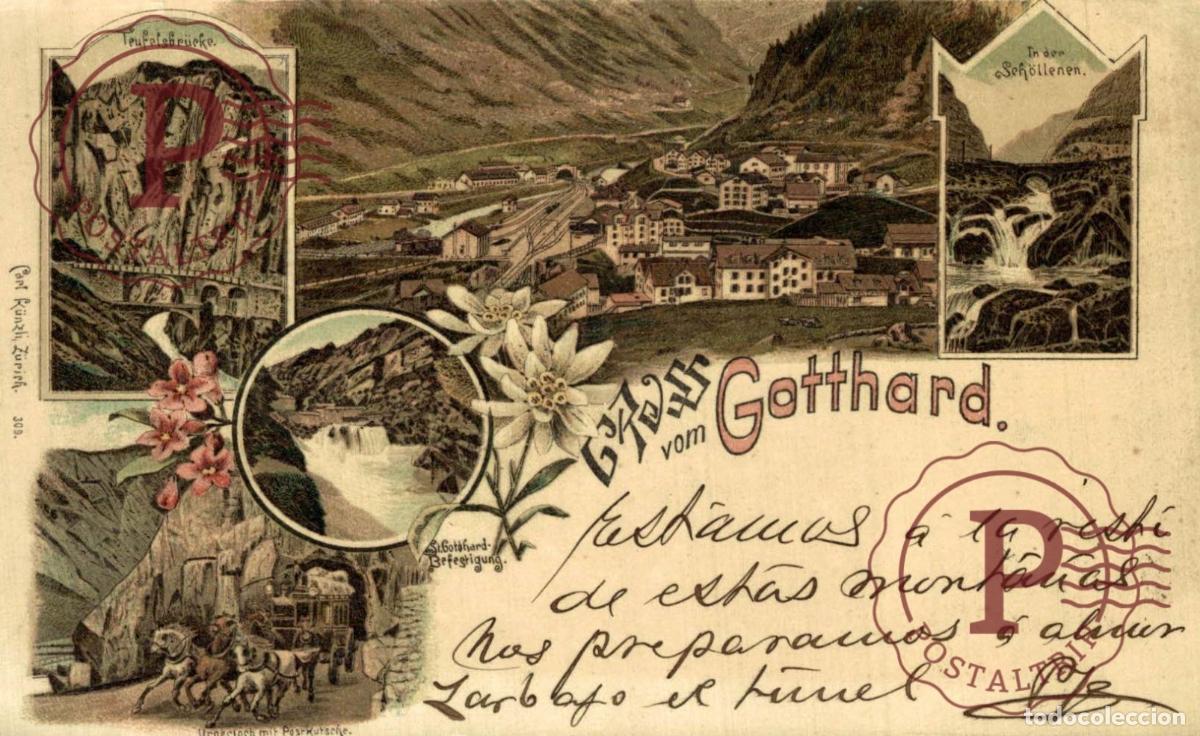 Teufelsbrücke.
In der
Schöllenen.
Carl Künzli, Zürich. 309.
Gruss
vom Gotthard.
St. Gotthard-
Befestigung.
Urnerloch mit Postkutsche.
Estámos á la
de estás montáñas
Nos preparamos á almor
zar bajo el túnel
P
POSTALTRIP
P
POSTALTRIP
todocoleccion